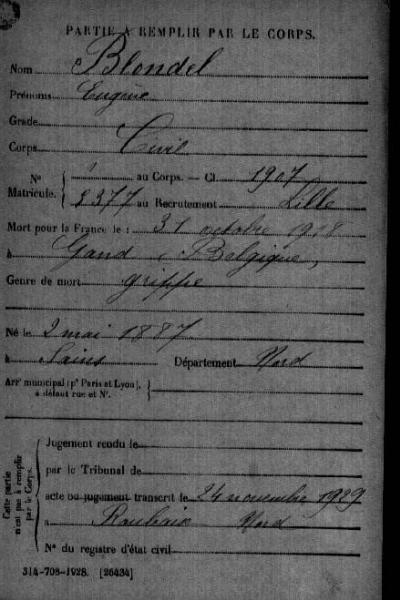 PARTIE À REMPLIR PAR LE CORPS.
Nom Blondel
Prénoms Eugène
Grade
Corps Civil
N° Matricule. { / au Corps. — Cl. 1907
2377 au Recrutement Lille
Mort pour la France le : 31 octobre 1918
à Gand (Belgique)
Genre de mort grippe
Né le 2 mai 1887
à Sains Département Nord
Arrt municipal (pr Paris et Lyon), à défaut rue et N°.
Cette partie n'est pas à remplir par le Corps.
Jugement rendu le
par le Tribunal de
acte ou jugement transcrit le 24 novembre 1929
à Roubaix Nord
N° du registre d'état civil
314-708-1928. [26434]